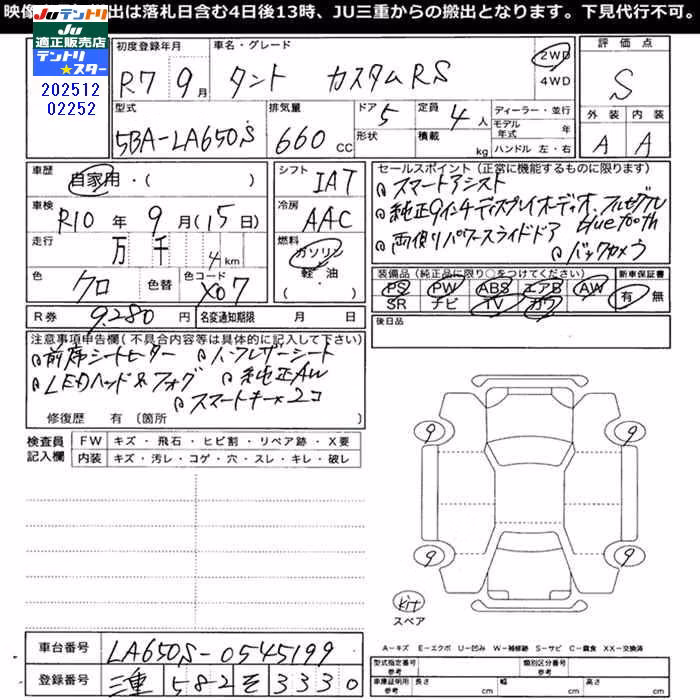 映像 出は落札日含む4日後13時、JU三重からの搬出となります。下見代行不可。
JUテントリ
Ju
適正販売店
テントリ
★スター
202512
02252
初度登録年月 車名・グレード 評価点
R7 9月 タント カスタムRS 2WD 4WD S
型式 排気量 ドア 定員 ディーラー・並行 外装 内装
5BA-LA650S 660 CC 5 4人 モデル年式 年 A A
形状 積載 kg ハンドル 左・右
車歴 自家用・( ) シフト IAT
セールスポイント(正常に機能するものに限ります)
スマートアシスト
純正9インチディスプレイオーディオ、フルセグTV
Bluetooth
両側パワースライドドア
バックカメラ
車検 R10年 9月(15日) 冷房 AAC
走行 万 千 4km 燃料 ガソリン 軽・油 ( )
色 クロ 色替 色コード X07
装備品(純正品に限り○をつけてください) 新車保証書
PS PW ABS エアB AW 有 無
SR ナビ TV カワ
R券 9,280円 名変通知期限 月 日
後日品
注意事項申告欄(不具合内容等は具体的に記入して下さい)
前席シートヒーター ハーフレザーシート
LEDヘッド&フォグ 純正AW
スマートキー×2コ
修復歴 有〔箇所 〕
検査員 FW キズ・飛石・ヒビ割・リペア跡・X要
記入欄 内装 キズ・汚レ・コゲ・穴・スレ・キレ・破レ
9 9
9 9
Kit
スペア
A-キズ E-エクボ U-凹み W-補修跡 S-サビ C-腐食 XX-交換済
車台番号 LA650S-0545199
登録番号 三重 582 そ 3330
型式指定番号 参考 類別区分番号
車庫証明用 参考 長さ cm 幅 cm 高さ cm